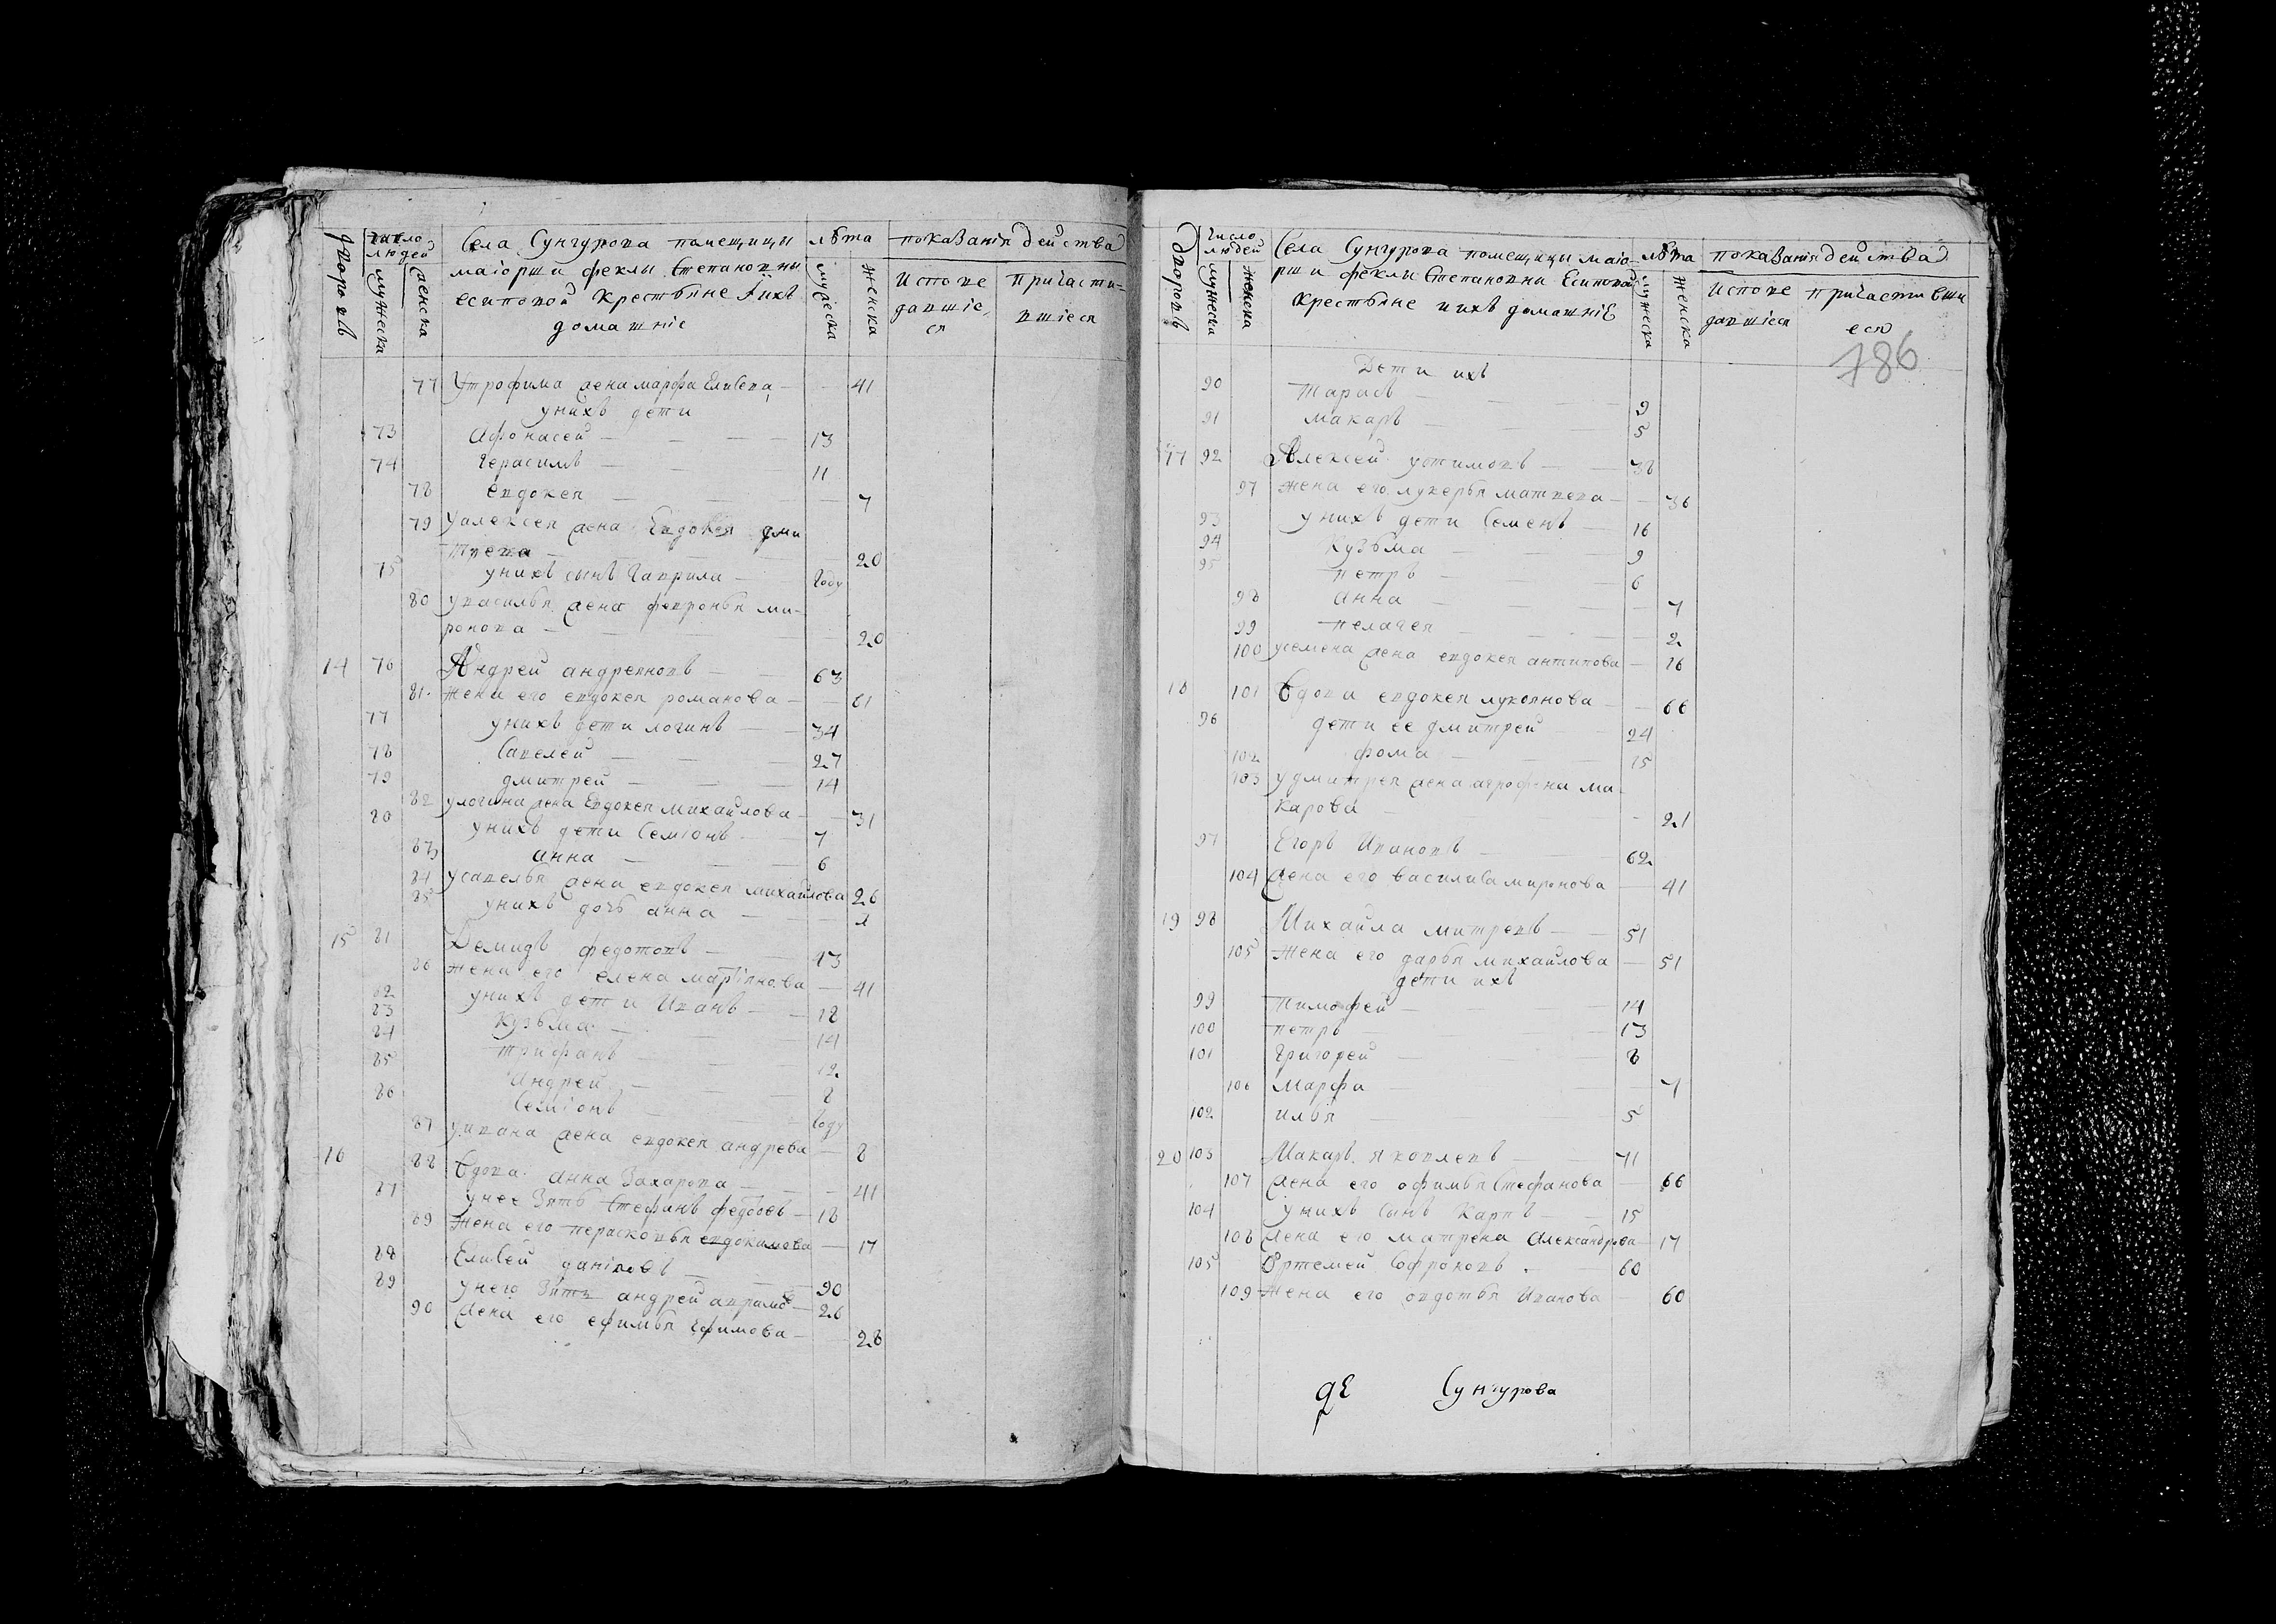 дворовъ число людей Села Сунгурова помещицы лѣта показанія действа
маіорши феклы Степановны
мужеска женска есиповой крестьяне іихъ мужеска женска Испове давшіе ся причасти вшіеся
домашніе
77 Утрофима жена марфа Елисева 41
унихъ дети
73 Афонасей 13
74 Герасимъ 11
78 Евдокея 7
79 Уалексея жена Евдокея дми
трева 20
75 унихъ сынъ Гаврила году
80 увасилья жена февронья ми-
ронова 20
14 76 Андрей андреяновъ 63
81 жена его евдокея романова 61
77 унихъ дети логинъ 34
78 Савелей 27
79 дмитрей 14
82 улогина жена Евдокея михайлова 31
80 унихъ дети Семіонъ 7
83 анна 6
84 усавелья жена евдокея михайлова 26
85 унихъ дочь анна 1
15 81 Демидъ федотовъ 43
86 жена его елена мартіянова 41
82 унихъ дети Иванъ 18
83 Кузьма 14
84 трифанъ 12
85 Андрей 8
86 Семіонъ году
87 уивана жена евдокея андрева 8
16 88 Вдова анна Захарова 41
87 унее Зять Стефанъ федосевъ 18
89 жена его перасковья евдокимова 17
88 Елисей даніловъ 90
89 унего Зять андрей аврамовъ 26
90 жена его ефимья Ефимова 28
дворовъ Число людей Села Сунгурова помещицы маіо- лѣта показанія действа
мужеска женска рши феклы Степановны Есиповой мужеска женска испове давшіеся причастивши еся
крестьяне иихъ домашніе
786
Дети ихъ
90 Тарасъ 9
91 макаръ 5
17 92 Алексей устимовъ 38
97 жена его лукерья матвева 36
93 унихъ дети Семенъ 16
94 Кузьма 9
95 петръ 6
98 анна 7
99 пелагея 2
100 усемена жена евдокея антипова 16
18 101 Вдова евдокея лукоянова 66
96 дети ее дмитрей 24
102 фома 15
103 удмитрея жена агрофена ма-
карова 21
97 Егоръ Ивановъ 62
104 жена его василиса миронова 41
19 98 Михайла митревъ 51
105 жена его дарья михайлова 51
дети ихъ
99 тимофей 14
100 петръ 13
101 григорей 8
106 марфа 7
102 илья 5
20 103 Макаръ яковлевъ 71
107 жена его офимья Стефанова 66
104 унихъ сынъ Карпъ 15
108 жена его матрена Александрова 17
105 Ортемей Софроновъ 60
109 жена его овдотья Иванова 60
Сунгурова